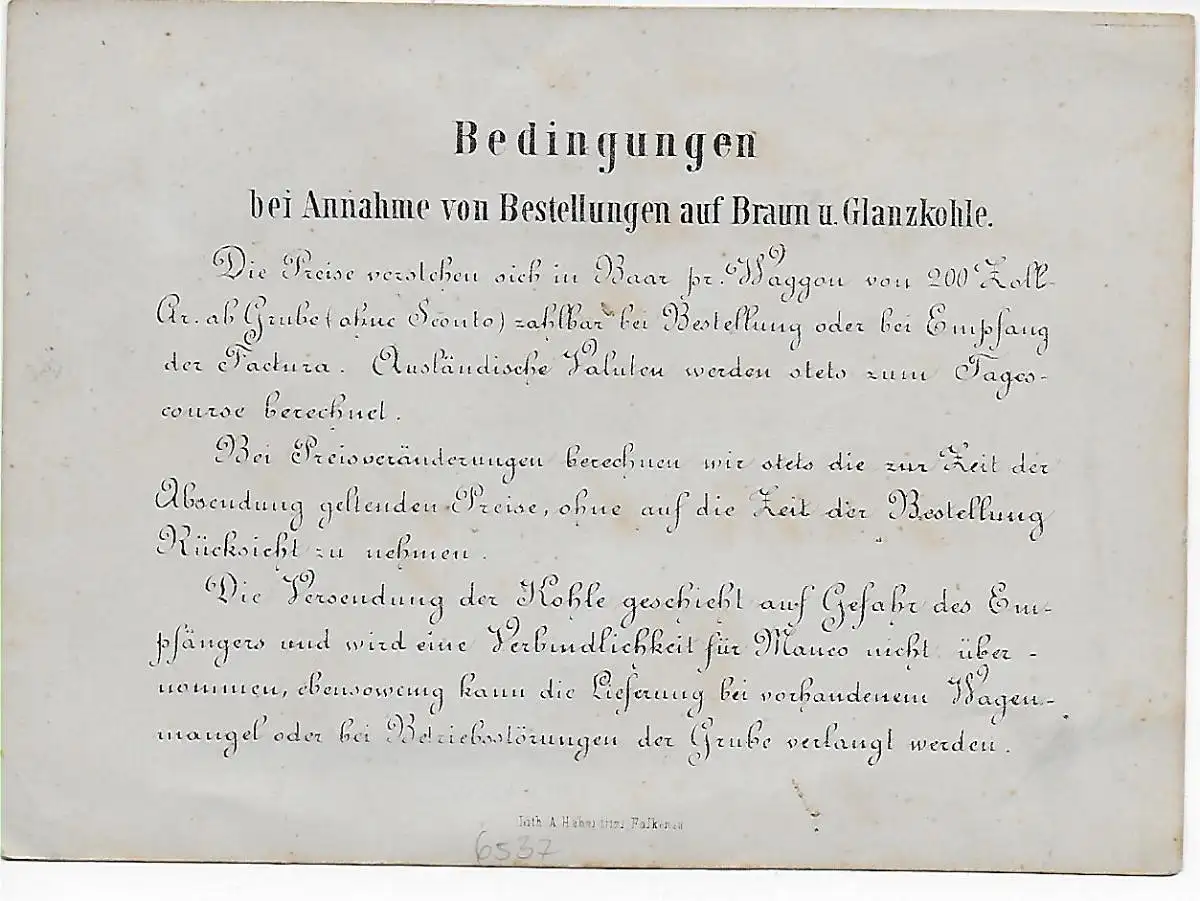 Bedingungen
bei Annahme von Bestellungen auf Braun u. Glanzkohle.
Die Preise verstehen sich in Baar pr. Waggon von 200 Zoll-
Ctr. ab Grube (ohne Sconto) zahlbar bei Bestellung oder bei Empfang
der Factura. Ausländische Valuten werden stets zum Tages-
course berechnet.
Bei Preisveränderungen berechnen wir stets die zur Zeit der
Absendung geltenden Preise, ohne auf die Zeit der Bestellung
Rücksicht zu nehmen.
Die Versendung der Kohle geschieht auf Gefahr des Em-
pfängers und wird eine Verbindlichkeit für Manco nicht über-
nommen, ebensowenig kann die Lieferung bei vorhandenem Wagen-
mangel oder bei Betriebsstörungen der Grube verlangt werden.
Lith. A. Falkenau
6537